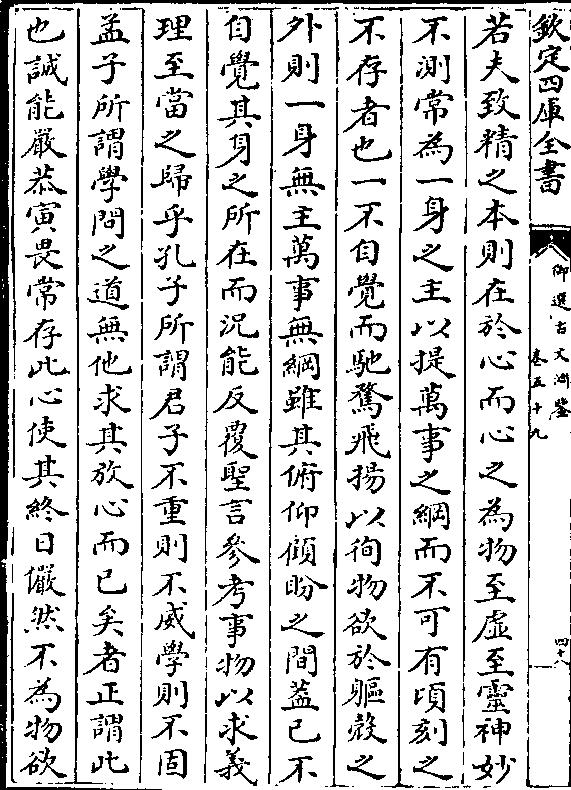 欽定四庫全書
御選古文淵鑒
卷五十九
四十八
若夫致精之本則在於心而心之為物至虛至靈神妙
不測常為一身之主以提萬事之綱而不可有頃刻之
不存者也一不自覺而馳騖飛揚以徇物欲於軀殻之
外則一身無主萬事無綱雖其俯仰顧盼之間葢已不
自覺其身之所在而況能反覆聖言參考事物以求義
理至當之歸乎孔子所謂君子不重則不威學則不固
孟子所謂學問之道無他求其放心而已矣者正謂此
也誠能嚴恭寅畏常存此心使其終日儼然不為物欲